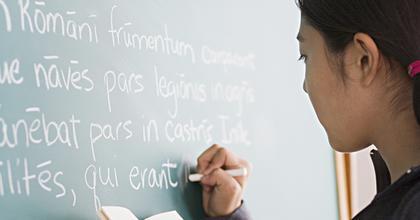 n Rōmānī frūmentum
ue nāvēs pars legiōnis in agrīs
anēbat pars in castrīs
ilitēs, quī erant